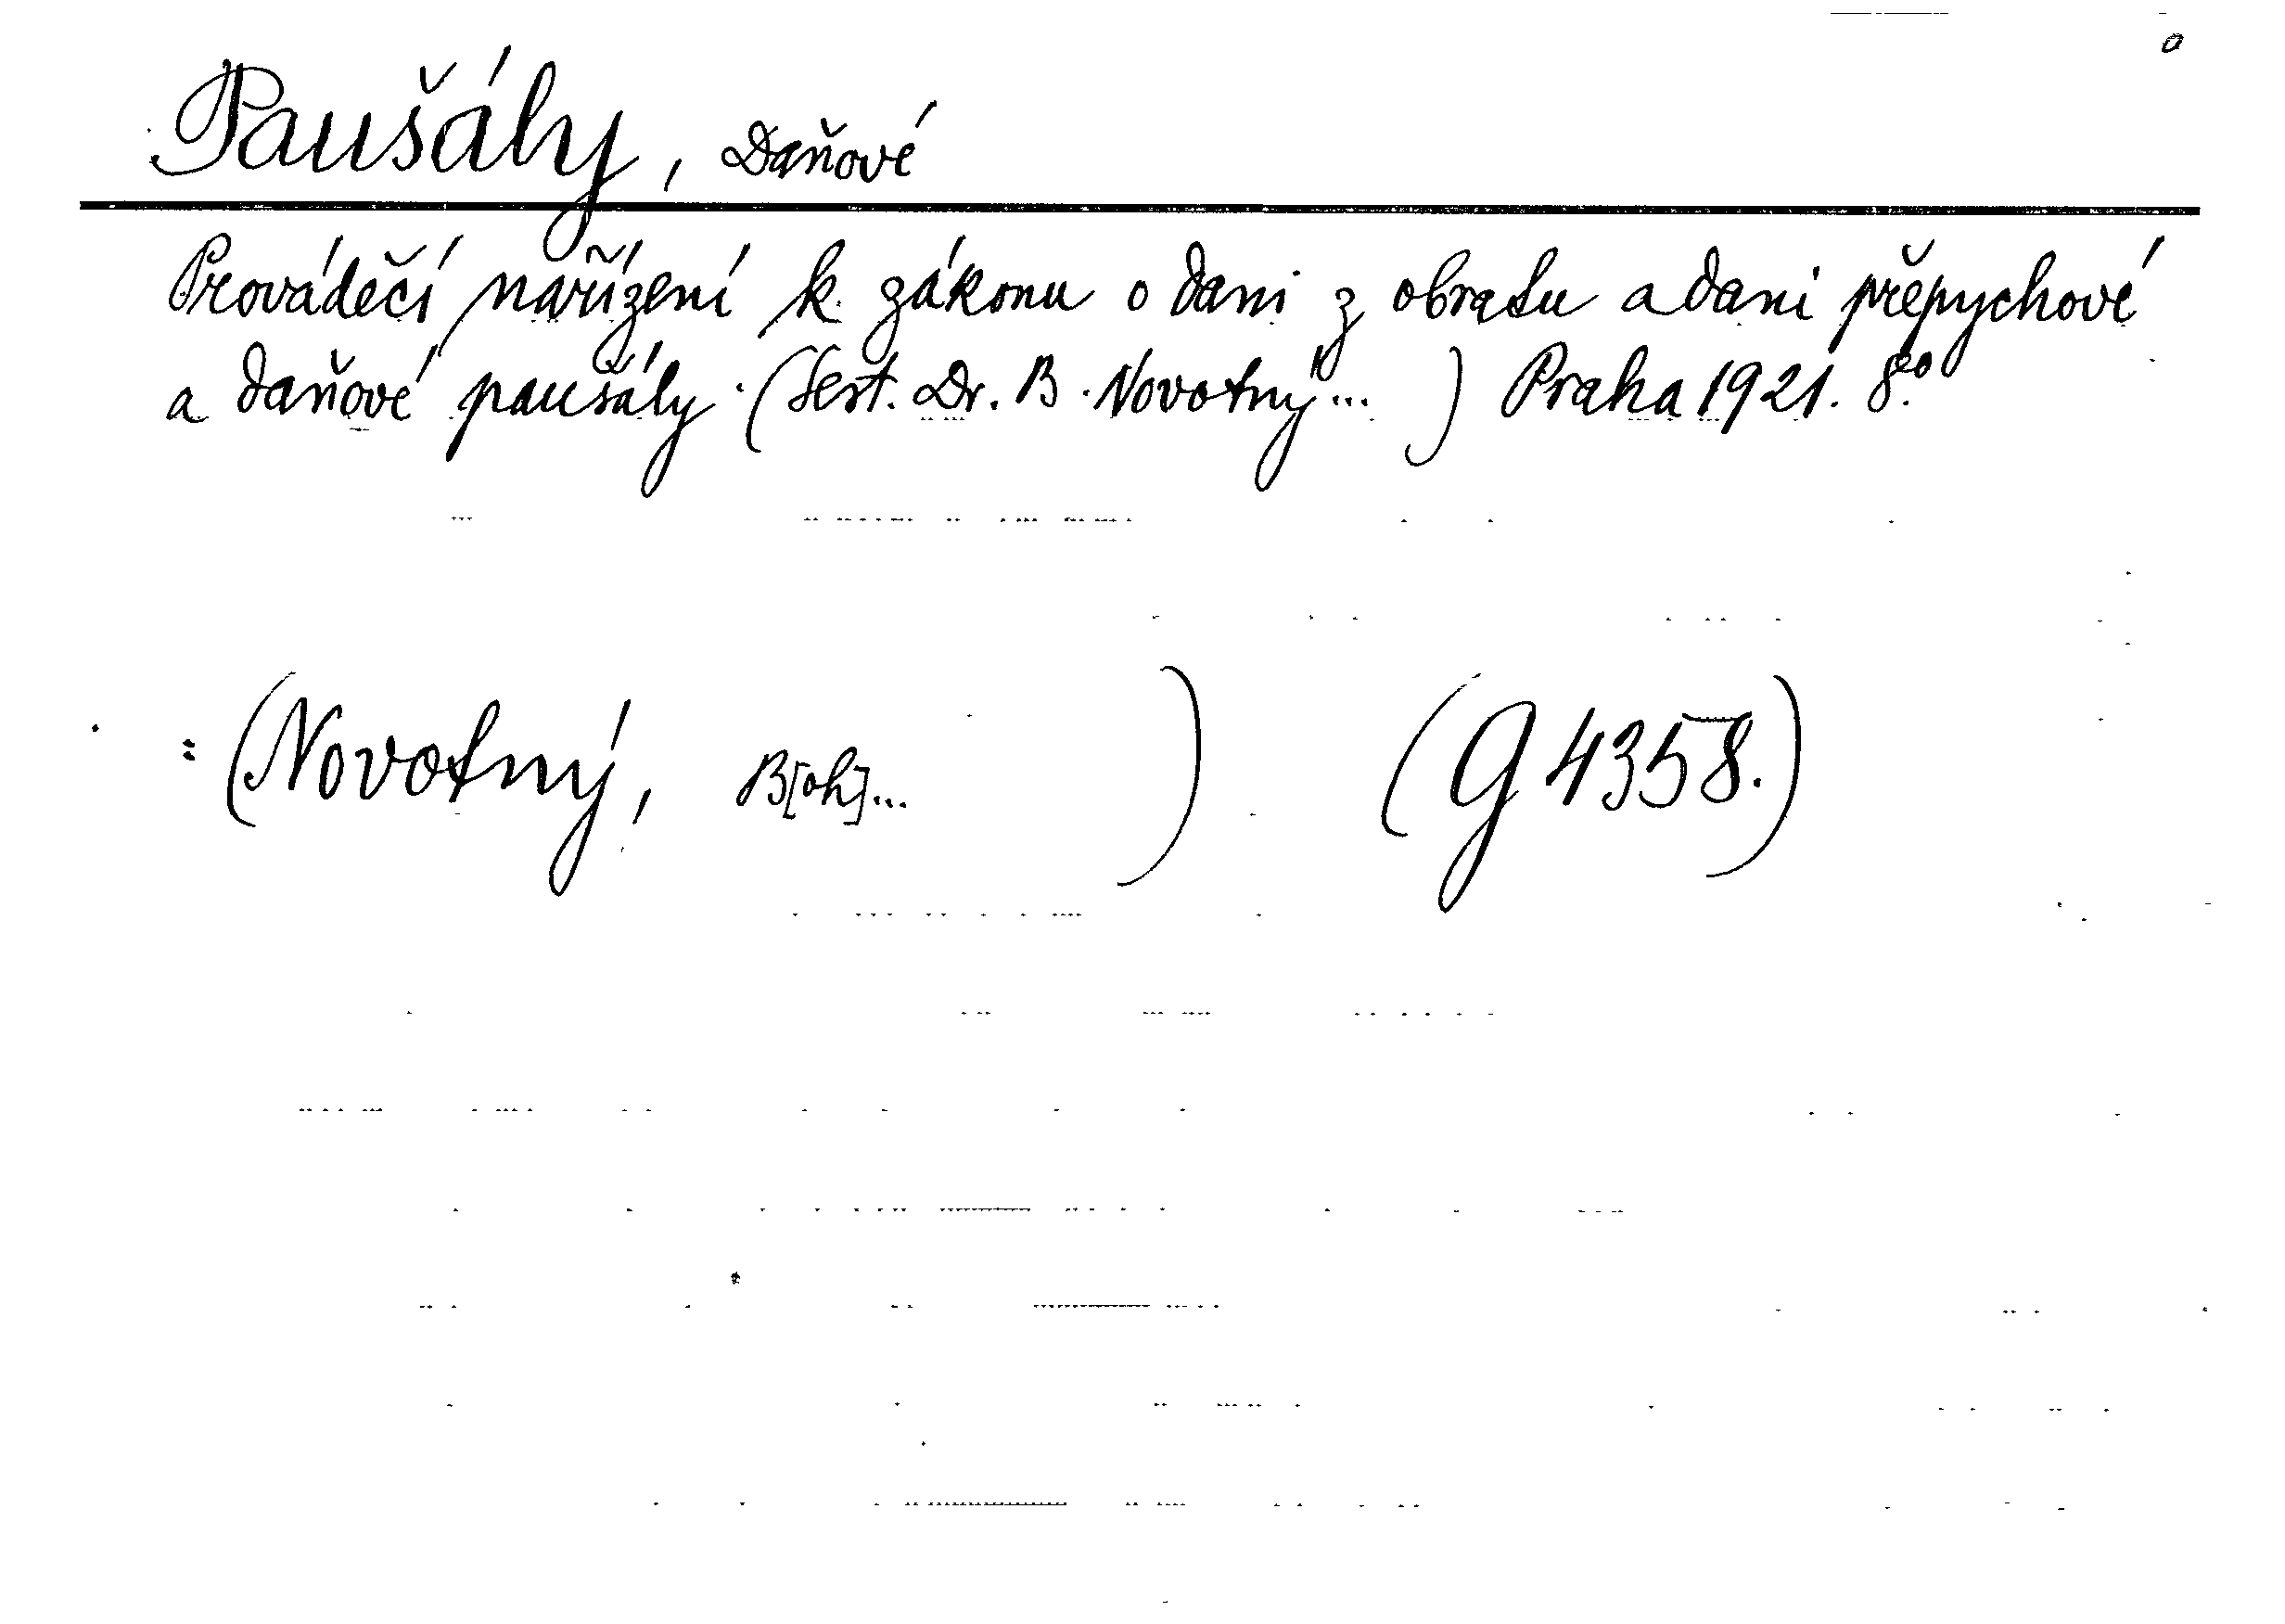 a
Paušály, Daňové
Prováděčí nařízení k zákonu o dani z obratu a dani přepychové
a daňové paušály. (Sest. Dr. B. Novotný...) Praha 1921. 8.°
: (Novotný, B[oh]... ) (G 4358.)